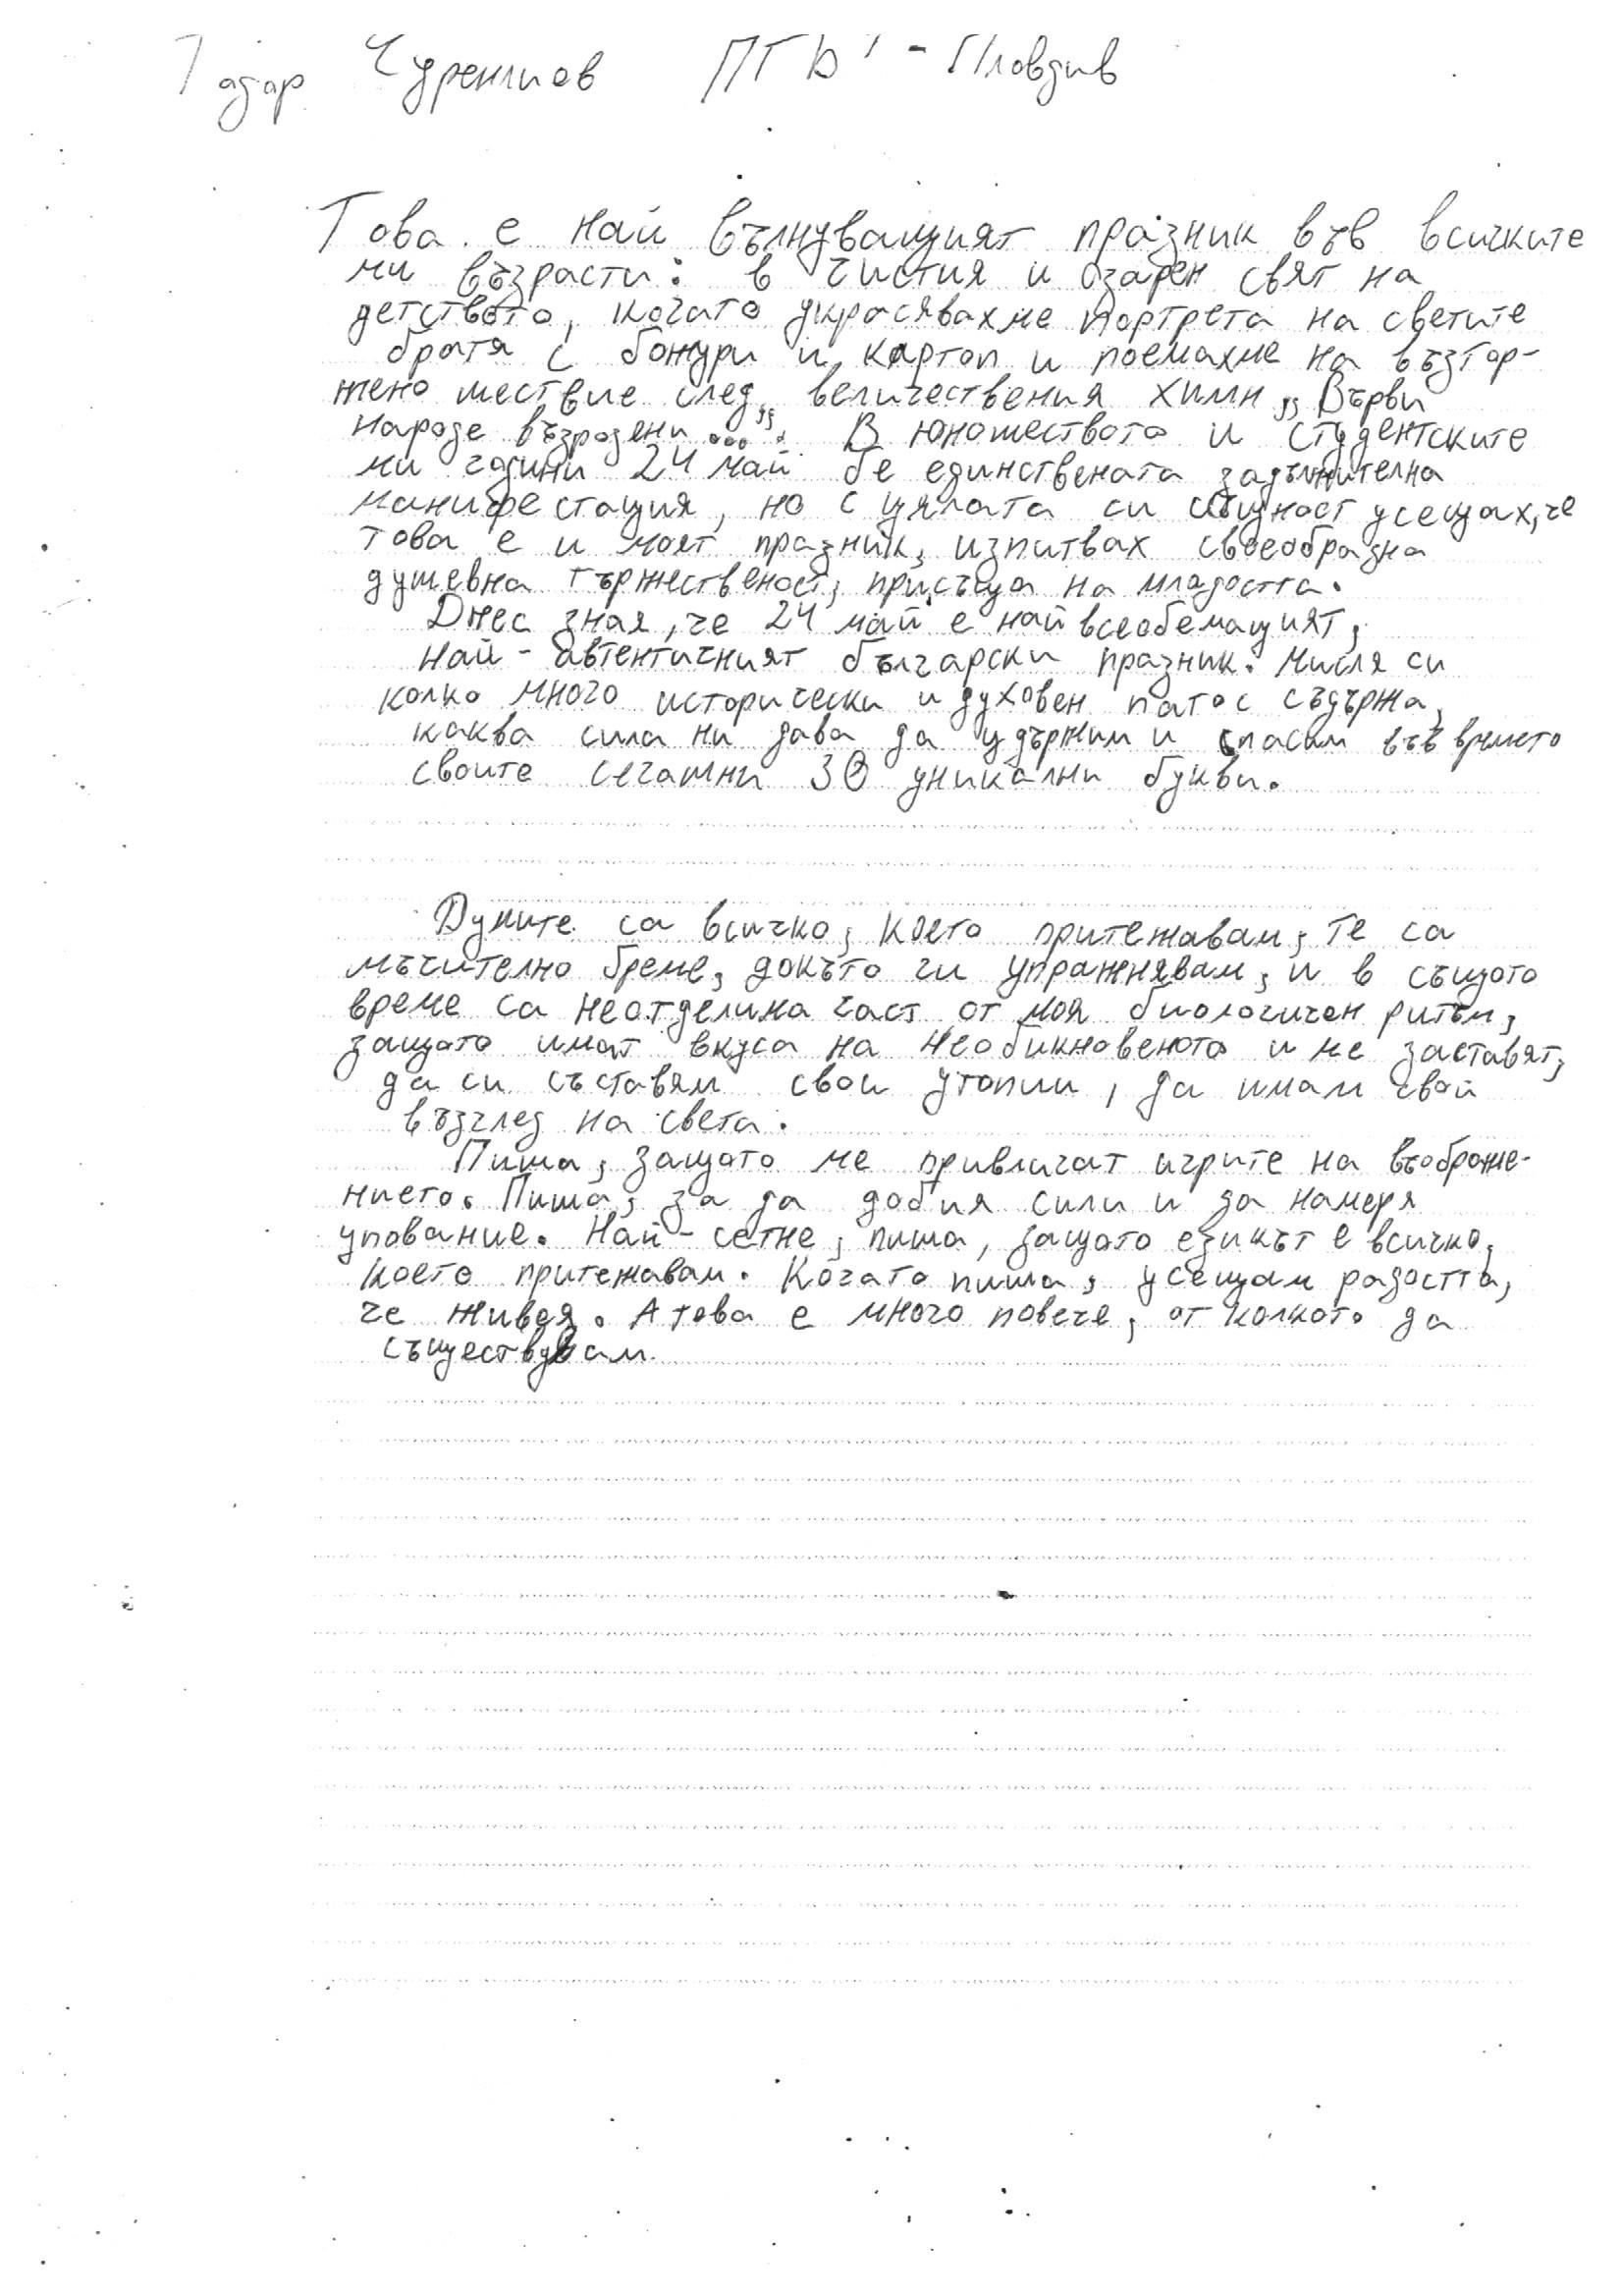 Тодор Чурелиов ПГ - Пловдив
Това е най вълнуващият празник във всичките
ми възрасти: в чистия и озарен свят на
детството, когато украсявахме портрета на светите
братя с божури и картоп и поемахме на възтор-
жено шествие след „ величествения химн „Върви
народе възродени...". В юношеството и студентските
ми години 24 май бе единствената задължителна
манифестация, но с цялата си същност усещах, че
това е и моят празник, изпитвах своеобразна
душевна тържественост, присъща на младостта.
Днес зная, че 24 май е най всеобемащият,
най-автентичният български празник. Мисля си
колко много исторически и духовен патос съдържа,
каква сила ни дава да удържим и спасим във времето
своите сегашни 30 уникални букви.
Думите са всичко, което притежавам, те са
мъчително бреме, докъто ги упражнявам, и в същото
време са неотделима част от моя биологичен ритъм,
защото имат вкуса на необикновеното и ме заставят,
да си съставям свои утопии, да имам свой
възглед на света.
Пиша, защото ме привличат игрите на въображе-
нието. Пиша, за да добия сили и да намеря
упование. Най-сетне, пиша, защото езикът е всичко,
което притежавам. Когато пиша, усещам радостта,
че живея. А това е много повече, от колкото да
съществувам.